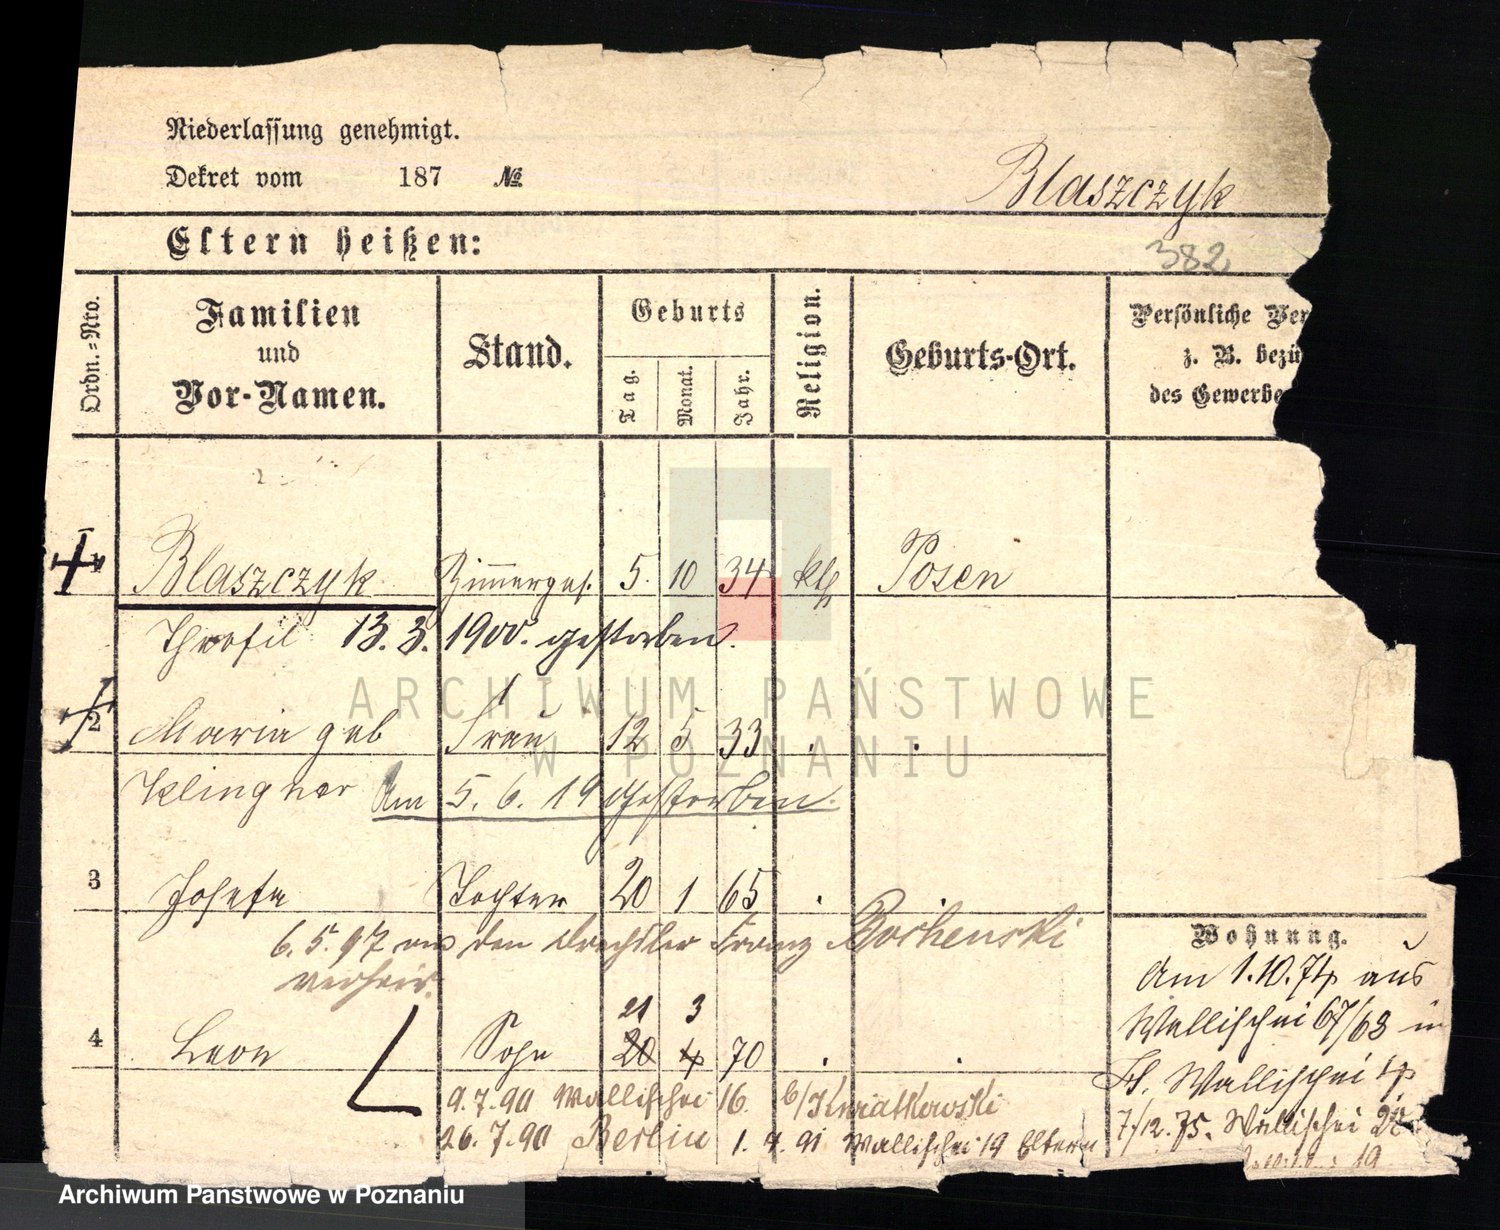 Niederlassung genehmigt.
Dekret vom 187 №
Blaszczyk
Eltern heißen:
382
Ordn.-Nro.
Familien und Vor-Namen.
Stand.
Geburts
Tag.
Monat.
Jahr.
Religion.
Geburts-Ort.
Persönliche Ver
z. B. bezü
des Gewerbe
Blaszczyk Zimmerges. 5. 10 34 kth Posen
13. 3. 1900. gestorben.
2 Maria geb Frau 12 5 33 . .
Klingner Am 5. 6. 19 gestorben.
3 Josefa Tochter 20 1 65 . .
6. 5. 97 den Drechsler Franz Bochenski
verheir.
21 3
4 Leon Sohn 20 4 70 . .
9.7.90 Wallischei 16. b/Kwiatkowski
26.7.90 Berlin 1. 7. 91 Wallischei 19 Eltern
Wohnung.
Am 1.10.74 aus
Wallischei 67/68 in
Wallischei 4
7/12.75. Wallischei
19
ARCHIWUM PAŃSTWOWE
W POZNANIU
Archiwum Państwowe w Poznaniu